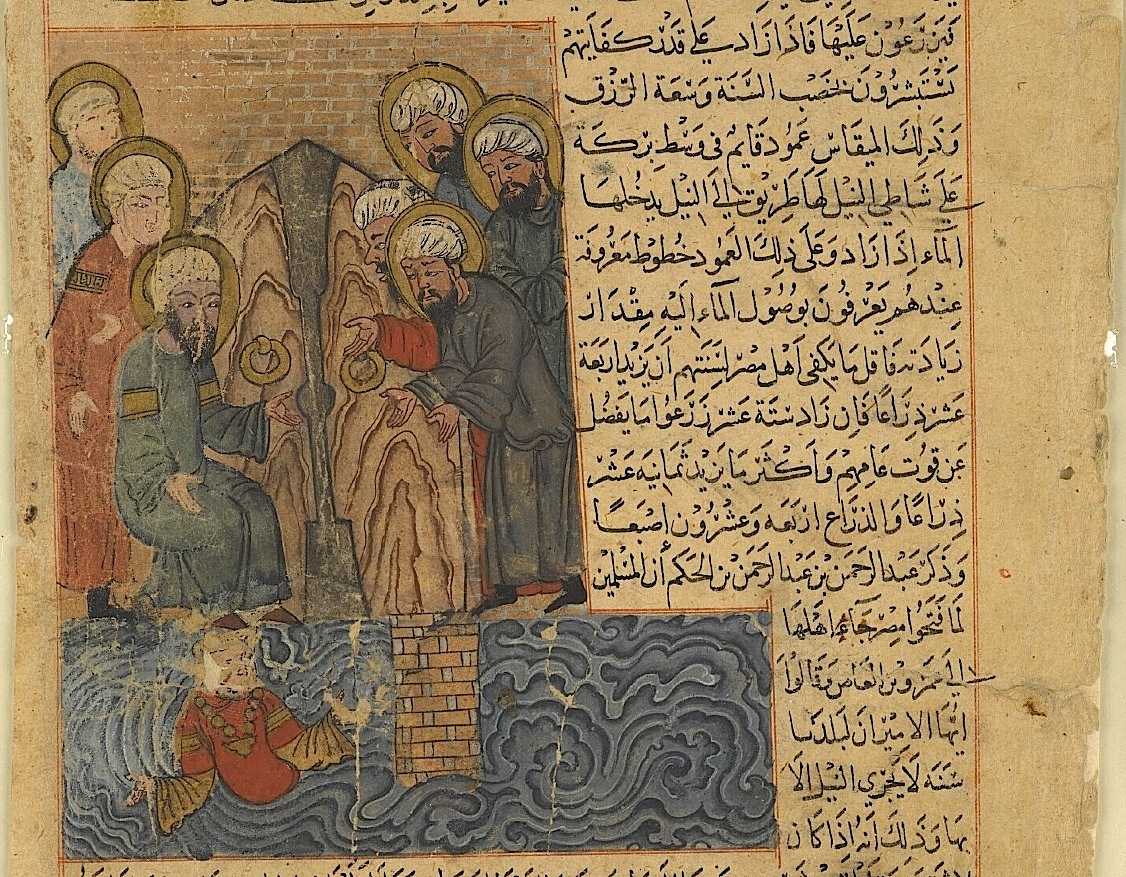 فيزرعون عليها فاذا زاد على قدر كفايتهم
تستبشرون بخصب السنة وسعة الرزق
وذلك المقياس عمود قايم فى وسط بركة
على شاطى النيل لها طريق الى النيل يدخلها
الماء اذا زاد وعلى ذلك العمود خطوط معروفة
عندهم يعرفون بوصول الماء اليه مقدار
زيادته فاقل ما يكفى اهل مصر لسنتهم ان يزيد اربعة
عشر ذراعا فان زاد ستة عشر زرعوا ما يفضل
عن قوت عامهم واكثر ما يزيد ثمانيه عشر
ذراعا والذراع اربعه وعشرون اصبعا
وذكر عبد الرحمن بن عبد الرحمن بن الحكم أن المسلمين
لما فتحوا مصر جاء اهلها
الى عمرو بن العاص وقالوا
ايها الامير ان لبلدنا
سنه لا يجرى النيل الا
بها وذلك انه اذا كان